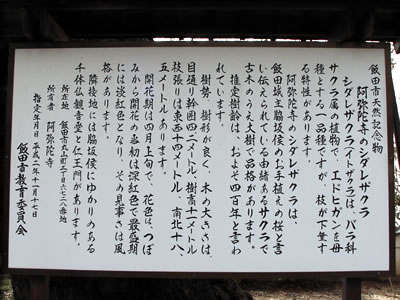 飯田市天然記念物
阿弥陀寺のシダレザクラ
シダレザクラ(イトザクラ)は、バラ科
サクラ属の植物で、エドヒガンを母
種とする一品種ですが、枝が下垂す
る特性があります。
阿弥陀寺のシダレザクラは、
飯田城主脇坂侯のお手植えの桜と言
い伝えられている由緒あるサクラで
古木のうえ大樹で品格があります。
推定樹齢は、およそ四百年と言わ
れています。
樹勢、樹形が良く、木の大きさは、
目通り幹囲四・二メートル、樹高十一メートル
枝張りは東西十四メートル、南北十八・
五メートルあります。
開花期は四月上旬で、花色は、つぼ
みから開花の当初は深紅色で最盛期
には淡紅色となり、その見事さは風
格があります。
隣接地には脇坂侯にゆかりのある
千体仏観音堂と仁王門があります。
所在地 飯田市丸山町二丁目六七二八番地
所有者 阿弥陀寺
指定年月日 平成二年十一月十七日
飯田市教育委員会